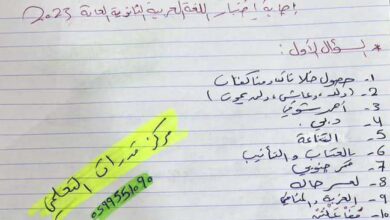 إجابة إختبار اللغة العربية الثانوية العامة 2023
* السؤال الأول:
1- حصول خلافات ومناكفات
2- (ولد، وعاش، ولم يموت)
3- أحمد شوقي
4- دبي.
5- القناعة
6- بالعتاب والتأنيب
7-
8- لعسر حاله
9- الحزبة، والمناصب
10-
مركز قدرات التعليمي
0599551090